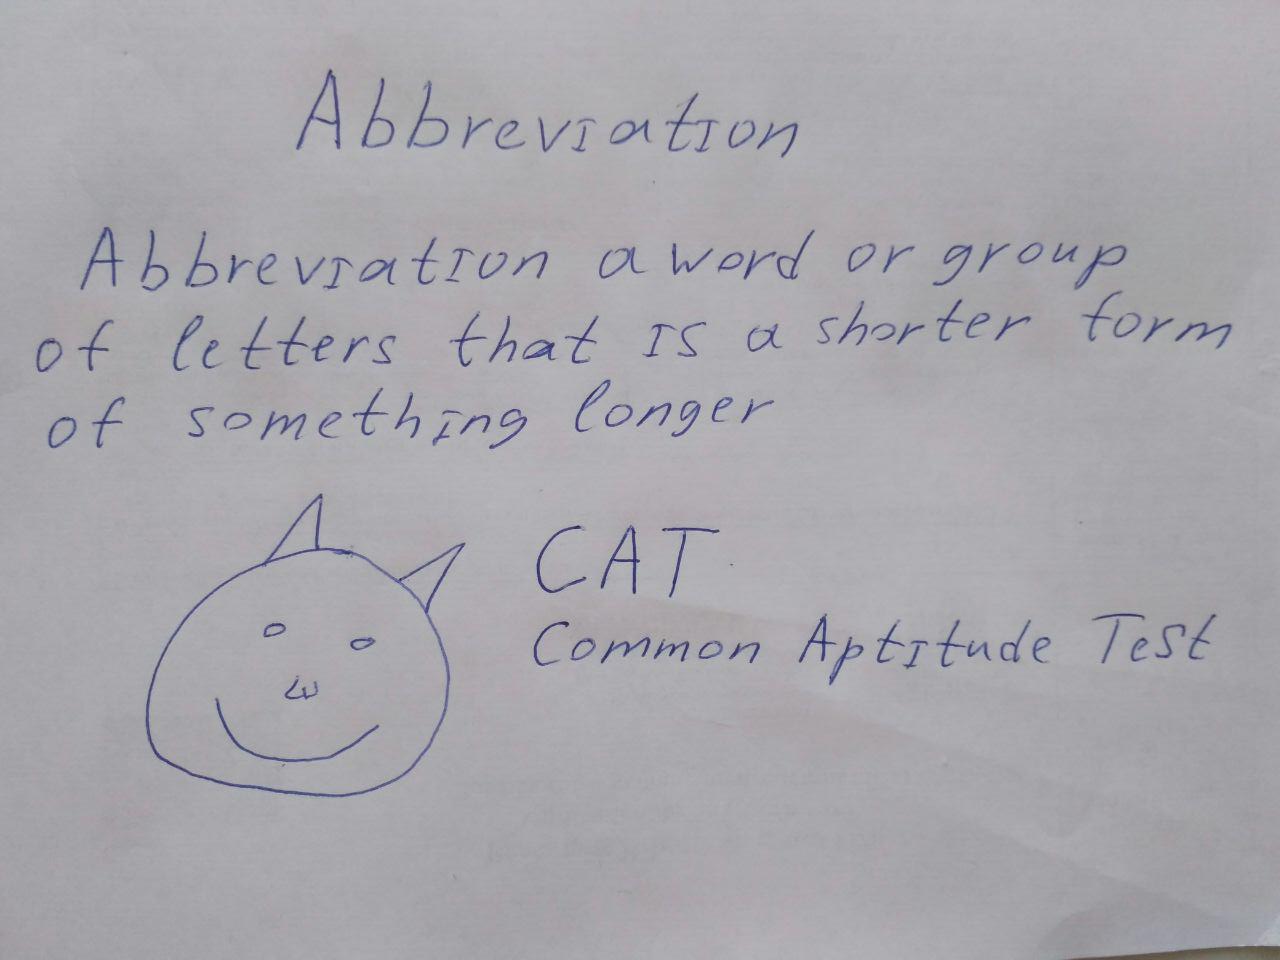 Abbreviation
Abbreviation a word or group
of letters that is a shorter form
of something longer
CAT
Common Aptitude Test